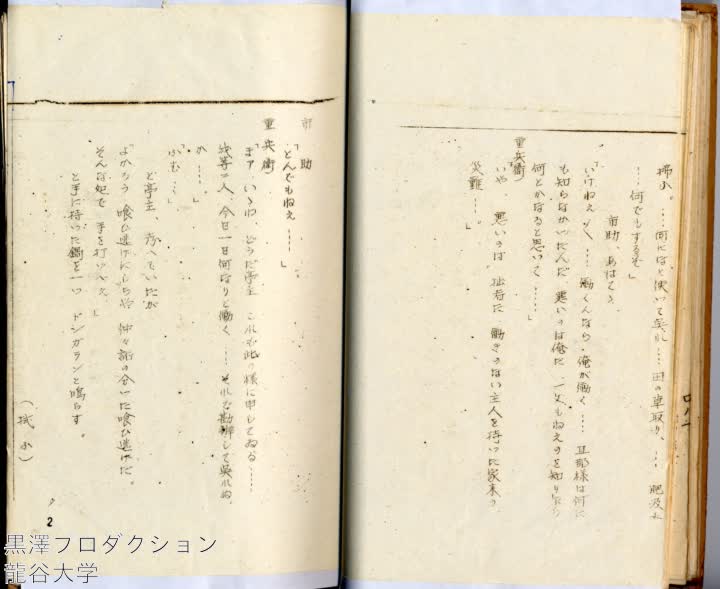 掃き。……何になと使いて呉れ……田の草取り、……肥汲み
……何でもするぞ」
市助、あはてゝ
「いけねえ〳〵……働くんなら、俺が働く……旦那様は何に
も知らなかつたんだ、悪いのは俺だ、一文もねえのを知り乍ら
何とかなると思いて……」
重兵衛
「いや、悪いのは、拙者だ、働きのない主人を持つた家来の
災難……。」
市助
「とんでもねえ……」
重兵衛
「まァ、いゝわ、どうだ亭主、これも此の様に申してゐる……
我等二人、今日一日何なりと働く……それで勘辨して呉れぬ
か……」
「ふむ……」
と亭主、考へていたが
「よかろう、喰ひ逃げにしちや、仲々話の合つた喰ひ逃げだ。
そんな処で手を打いべえ」
と手に持つた鍋を一つ、ドンガランと鳴らす。
2
黒澤プロダクション
龍谷大学